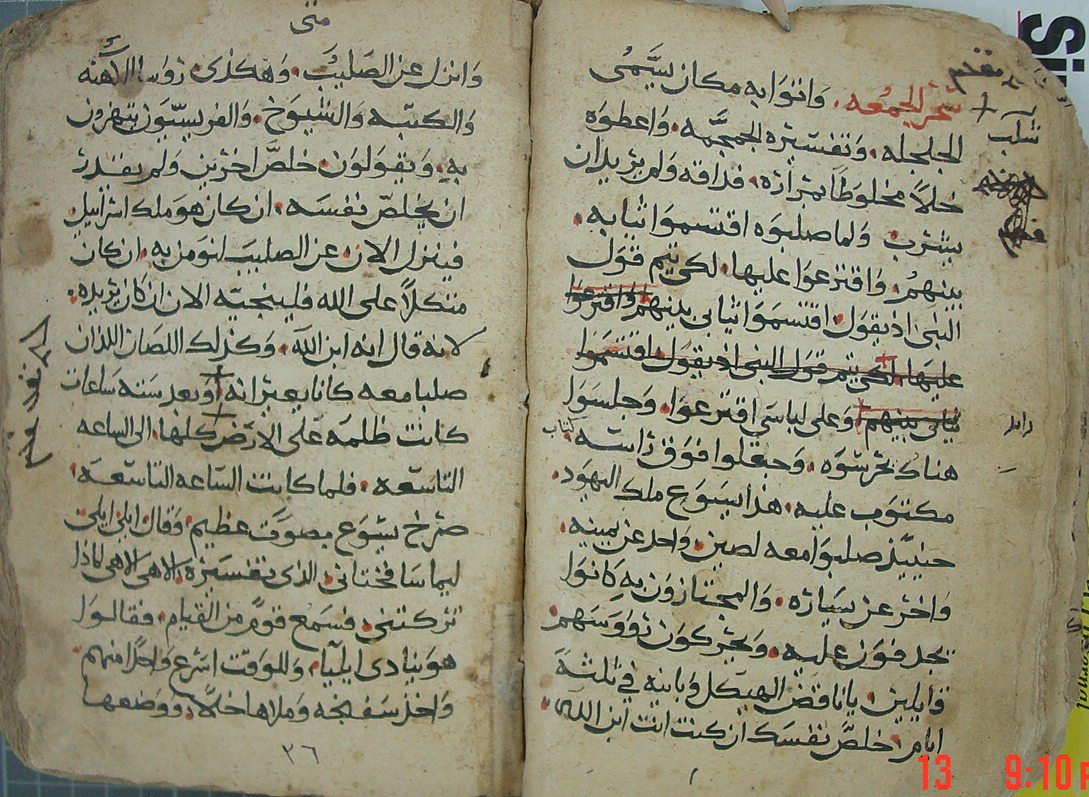 سحر الجمعه. واتوا به مكان يسمى
الجلجله. وتفسيره الجمجمه. واعطوه
خلاً مخلوطا بمراره. فذاقه ولم يريدان
يشرب. ولما صلبوه اقتسموا ثيابه.
بينهم. واقترعوا عليها. لكي يتم قول
النبى اذ يقول. اقتسموا ثيابى بينهم واقترعوا
عليها. لكي يتم قول النبى اذ يقول. اقتسموا
ثيابى بينهم وعلى لباسى اقترعوا. وجلسوا
هناك يحرسوه. وجعلوا فوق راسه. كتاب
مكتوب عليه. هذا يسوع ملك اليهود.
حينيذ صلبوا معه لصين. واحد عن يمينه.
واخر عن يساره. والمجتازون به كانوا
يجدفون عليه. ويحركون رووسهم
قايلين. ياناقض الهيكل وبانيه في ثلثة
ايام. خلص نفسك ان كنت انت ابن الله.
زايد
متى
وانزل عن الصليب. وهكذى روسا الكهنه
والكتبه والشيوخ. والفريسيون يتهزون
به. ويقولون. خلص اخرين ولم يقدر
ان يخلص نفسه. ان كان هو ملك اسراييل
فينزل الان. عن الصليب لنومن به. ان كان
متكلاً على الله فلينجيه الان ان كان يريده.
لانه قال انه ابن الله. وكذلك اللصان اللذان
صلبا معه كانا يعيرانه. وبعد سته ساعات
كانت ظلمه على الارض كلها. الى الساعه
التاسعه. فلما كانت الساعه التاسعه.
صرخ يسوع بصوت عظيم. وقال ايلى ايلى
ليما سافختانى. الذى تفسيره. الاهى الاهى لماذا
تركتنى. فسمع قوم من القيام. فقالوا
هو ينادى ايليا. وللوقت اسرع واحدا منهم
واخذ سفنجه وملاها خلاً. ووضعها
٣٦
13 9:10